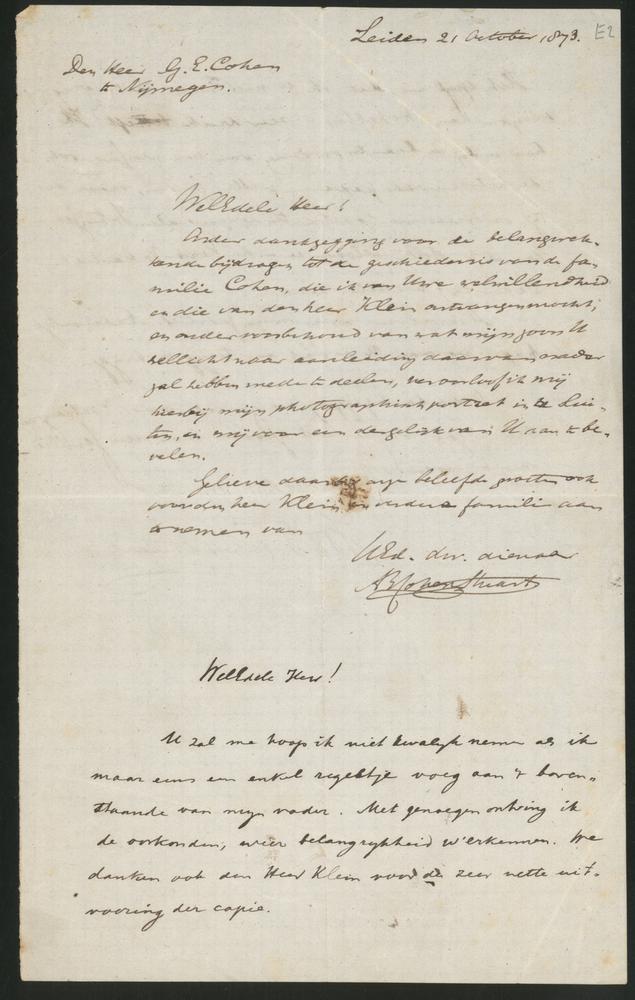 Leiden 21 October 1873. E2
Den Heer G. E. Cohen
te Nijmegen.
WelEdele Heer!
Onder dankzegging voor de belangwek-
kende bijdragen tot de geschiedenis van de fa-
milie Cohen, die ik van Uwe welwillendheid
en die van den heer Klein ontvangen mocht,
en onder voorbehoud van wat mijn zoon U
wellicht naar aanleiding daarvan nader
zal hebben mede te deelen, veroorloof ik mij
hierbij mijn photographisch portret in te slui-
ten, en mij voor een dergelijk van U aan te be-
velen.
Gelieve daarbij onze beleefde groeten ook
voor den heer Klein en verdere familie aan
te nemen van
UEd. dw. dienaar
AB Cohen Stuart
WelEdele Heer!
U zal me hoop ik niet kwalijk nemen als ik
maar eens een enkel regeltje voeg aan 't boven-
staande van mijn vader. Met genoegen ontving ik
de oorkonden, wier belangrykheid w'erkennen. We
danken ook den Heer Klein voor de zeer nette uit-
voering der copie.